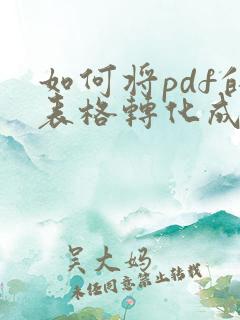 如何将pdf的
表格轉化成
吴大妈
未经同意禁止转载